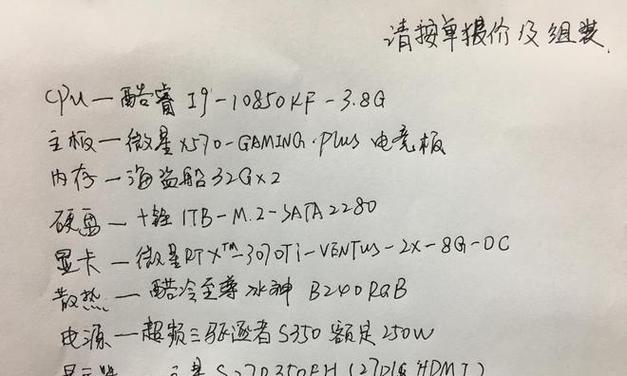 请按单报价及组装.
CPU—酷睿 I9-10850KF-3.8G
主板—微星X570-GAMING.Plus 电竞板
内存—海盗船32G×2
硬盘—十铨 1TB-M.2-SATA2280
显卡—微星RTX™-3070Ti-VENTUS-2X-8G-OC
散热—酷冷至尊冰神 B240RGB
电源—超频三驱逐者S350 额定250W
显示器— S27D350FH(27D1G HDMI)